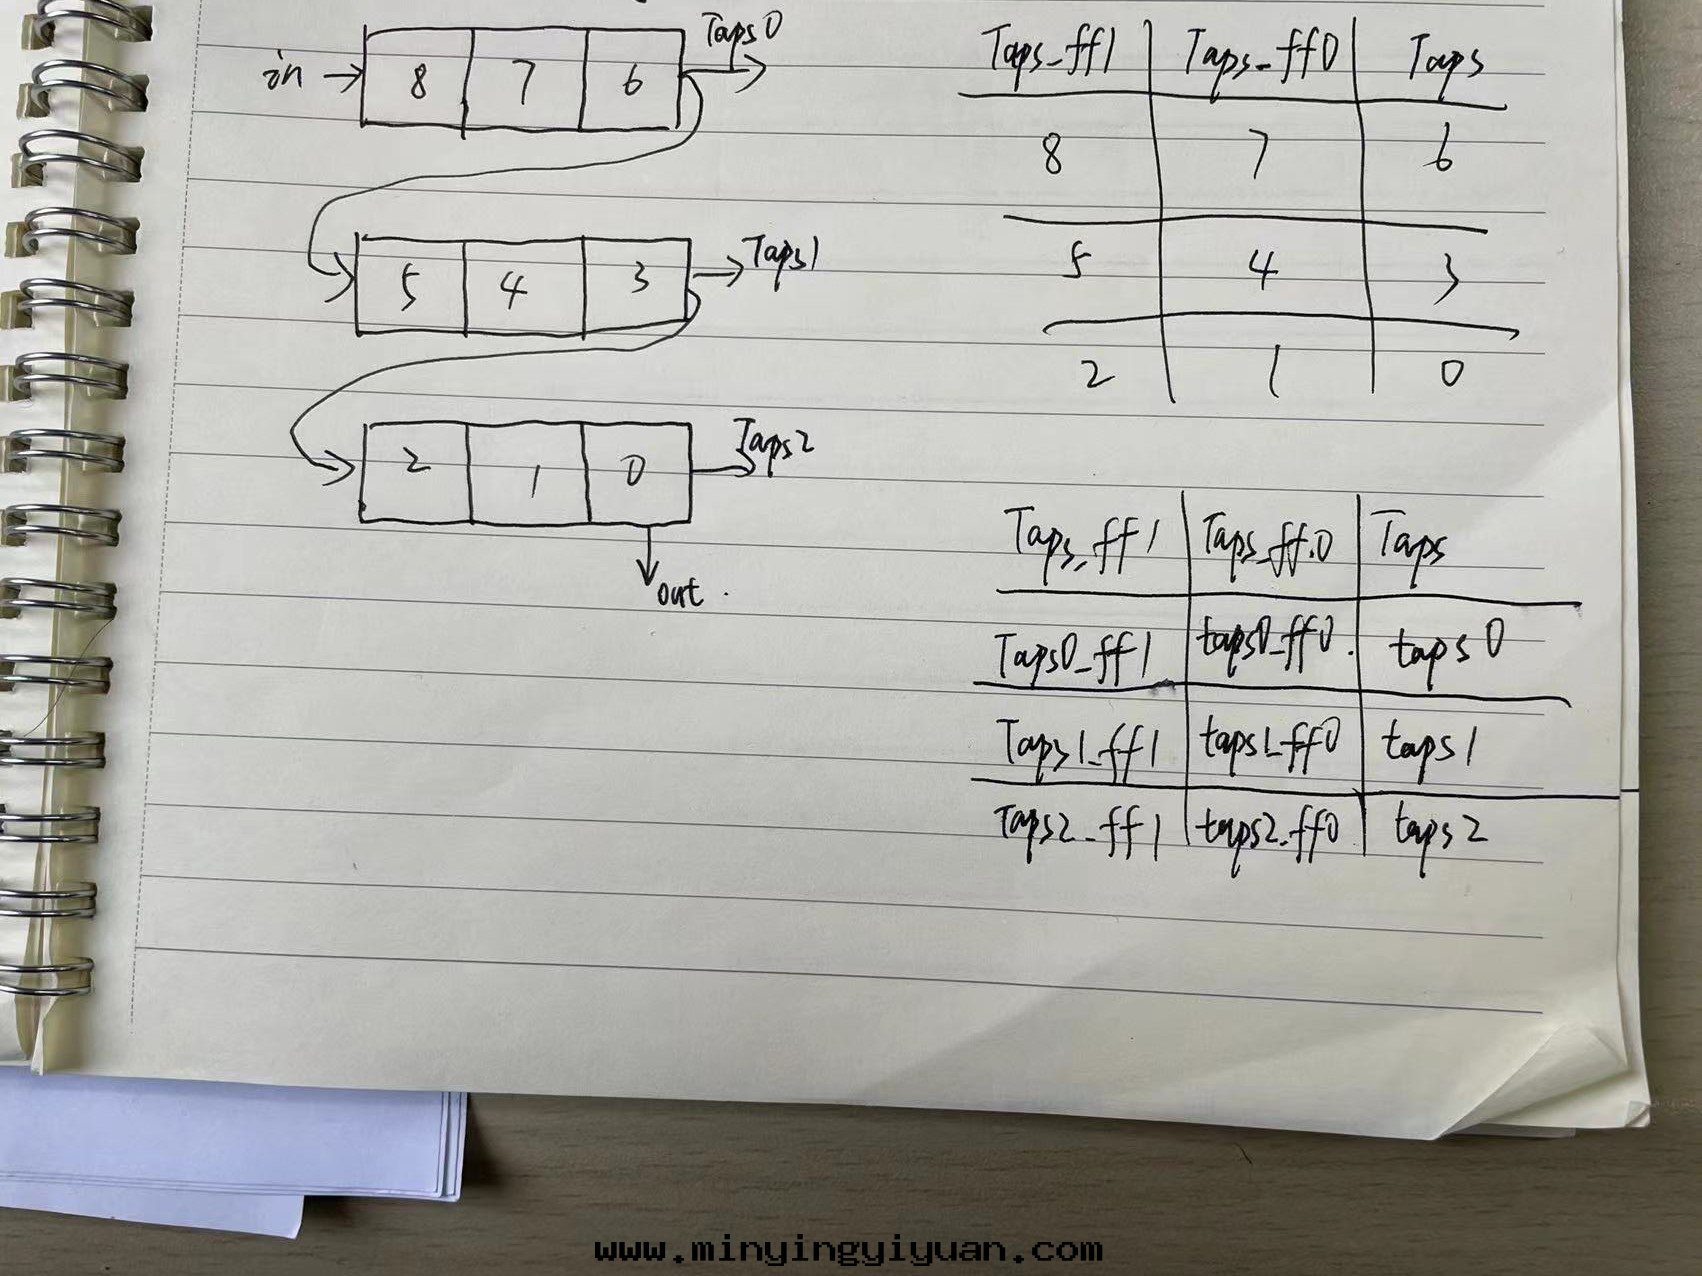 in → 8 7 6 Taps0
5 4 3 Taps1
2 1 0 Taps2
out.
Taps_ff1 Taps_ff0 Taps
8 7 6
5 4 3
2 1 0
Taps_ff1 Taps_ff0 Taps
Taps0_ff1 taps0_ff0. taps0
Taps1_ff1 taps1_ff0 taps1
Taps2_ff1 taps2_ff0 taps2
www.minyingyiyuan.com